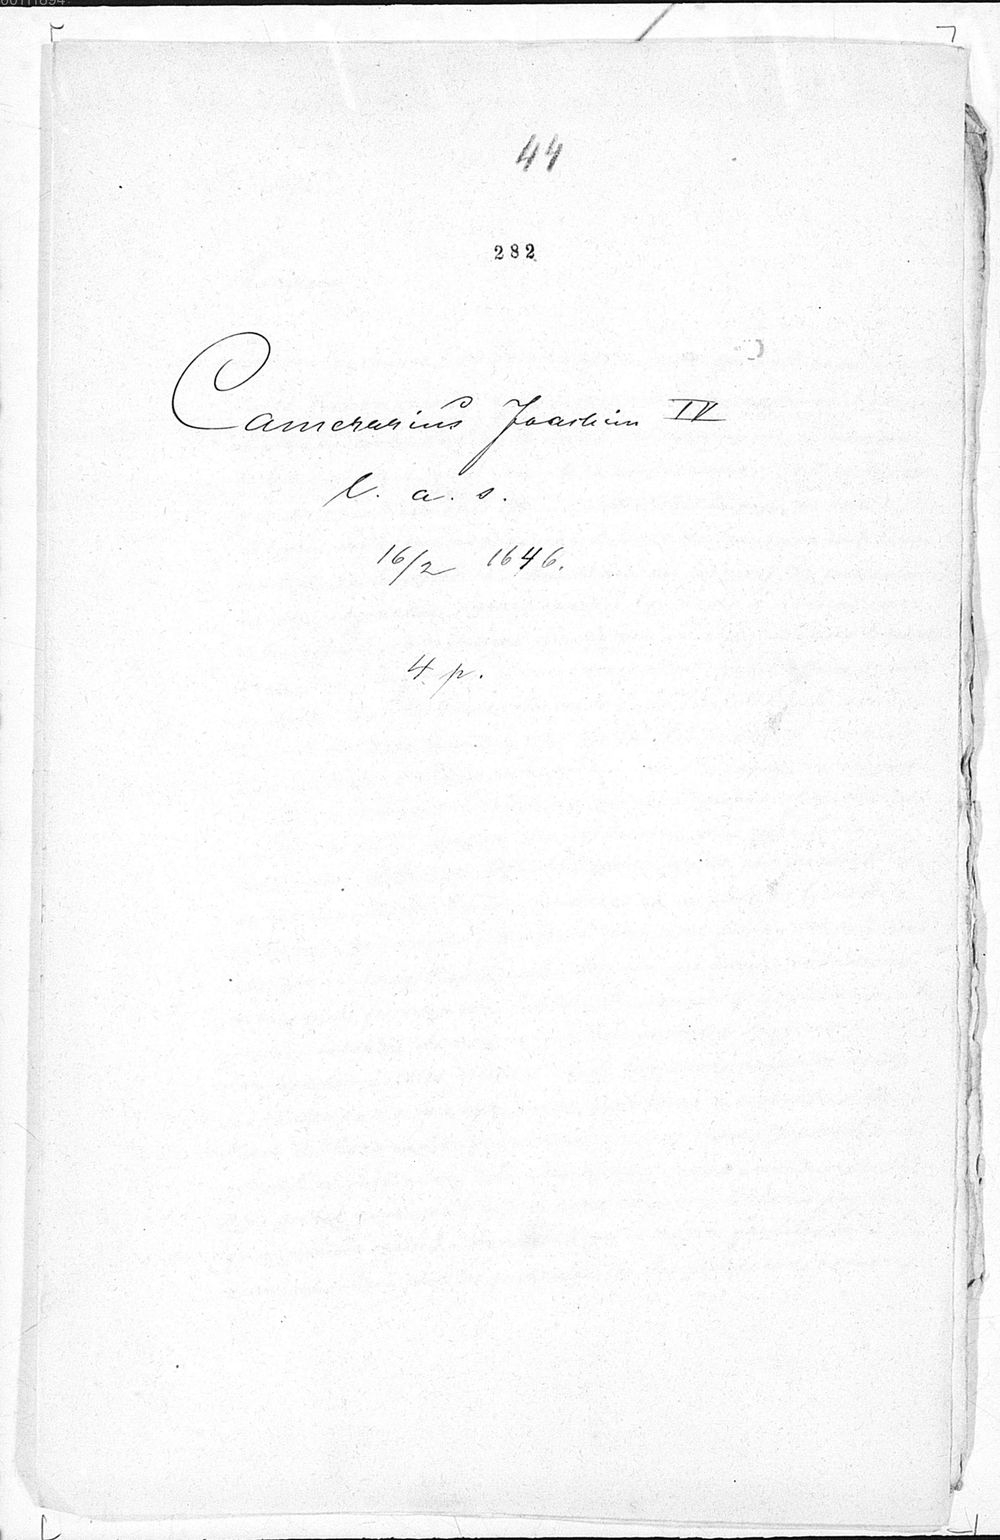 44
282
Camerarius Joachim IV
l. a. s.
16/2 1646.
4 p.